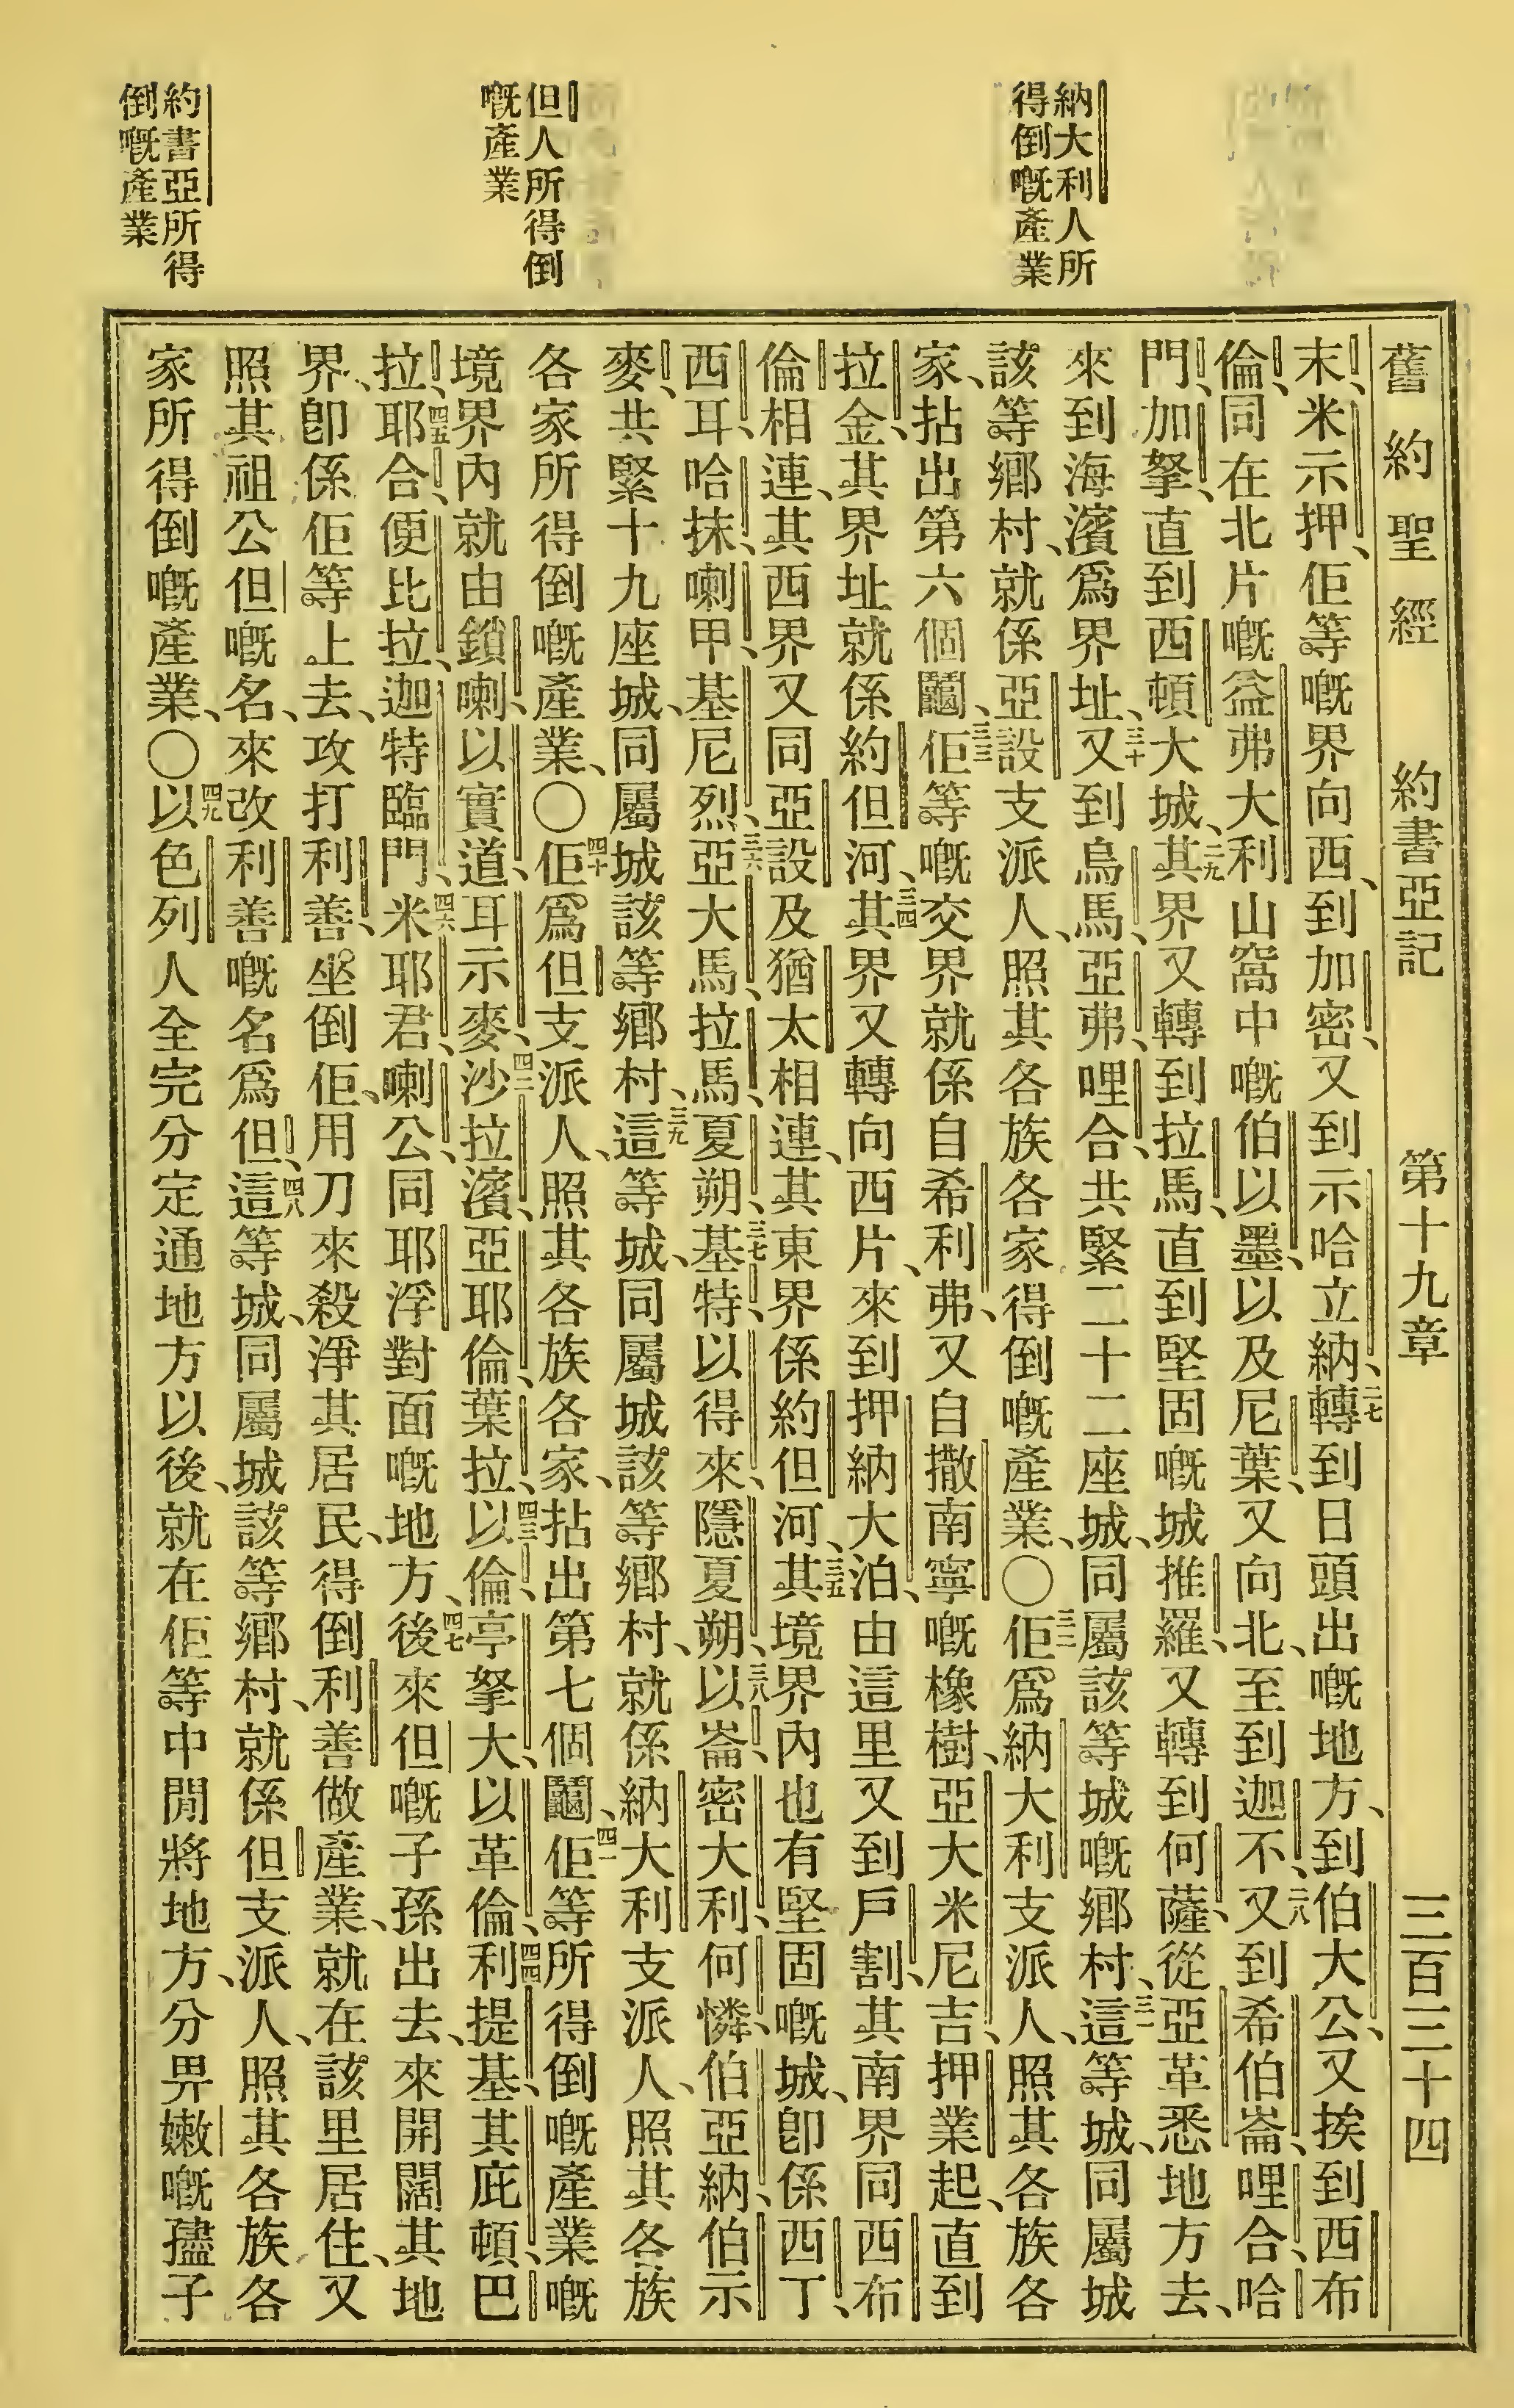 納大利人所
得倒嘅產業
但人所得倒
嘅產業
約書亞所得
倒嘅產業
舊約聖經 約書亞記 第十九章 三百三十四
末、米示押、佢等嘅界向西、到加密、又到示哈立納、二七轉到日頭出嘅地方、到伯大公、又挨到西布
倫、同在北片嘅益弗大利山窩中嘅伯以墨、以及尼葉、又向北、至到迦不、二八又到希伯崙、哩合、哈
門、加拏、直到西頓大城、二九其界又轉到拉馬、直到堅固嘅城推羅、又轉到何薩、從亞革悉地方去、
來到海濱爲界址、三十又到烏馬、亞弗、哩合、共緊二十二座城、同屬該等城嘅鄉村、三一這等城、同屬城
該等鄉村、就係亞設支派人、照其各族各家得倒嘅產業、〇三二佢爲納大利支派人、照其各族各
家、拈出第六個鬮、三三佢等嘅交界就係自希利弗、又自撒南寧嘅橡樹、亞大米尼吉、押業起、直到
拉金、其界址就係約但河、三四其界又轉向西片、來到押納大泊、由這里又到戶割、其南界同西布
倫相連、其西界又同亞設及猶太相連、其東界係約但河、三五其境界內也有堅固嘅城、卽係西丁、
西耳、哈抹、喇甲、基尼烈、三六亞大馬、拉馬、夏朔、三七基特、以得來、隱夏朔、三八以崙、密大利、何憐、伯亞納、伯示
麥、共緊十九座城、同屬城該等鄉村、三九這等城、同屬城該等鄉村、就係納大利支派人、照其各族
各家所得倒嘅產業、〇四十佢爲但支派人、照其各族各家、拈出第七個鬮、四一佢等所得倒嘅產業嘅
境界內就由鎖喇、以實道、耳示麥、四二沙拉濱、亞耶倫、葉拉、四三以倫、亭拏大、以革倫、四四利提基、其庇頓、巴
拉、四五耶合、便比拉、迦特臨門、四六米耶君、喇公、同耶浮對面嘅地方、四七後來但嘅子孫出去、來開闊其地
界、卽係佢等上去、攻打利善、坐倒佢、用刀來殺淨其居民、得倒利善做產業、就在該里居住、又
照其祖公但嘅名、來改利善嘅名爲但、四八這等城、同屬城該等鄉村、就係但支派人、照其各族各
家所得倒嘅產業、〇四九以色列人全完分定通地方以後、就在佢等中閒將地方、分畀嫩嘅孻子